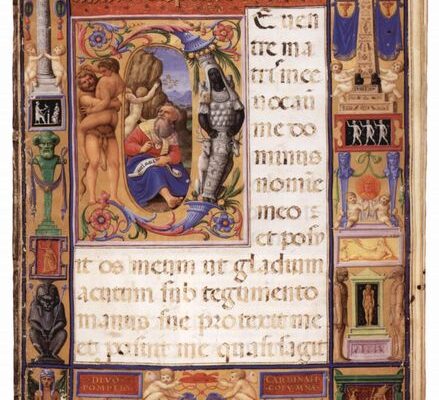 E uen
tre ma
tris mee
uocaui
me do
minus
nomie
meo :
et posu
it os meum ut gladium
acutum sub tegumento
manus sue protexit me
et posuit me quasi sagit
DIVO CARDINALI
POMPEIO COLVMNAE